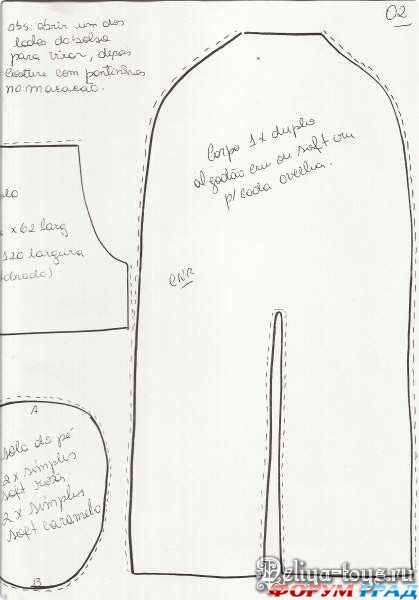 02
obs: abrir um dos
lados da bolsa
para virar, depois
costure com pontinhos
no macacão.
Corpo 1x duplo
algodão cru ou soft cru
p/ cada ovelha.
x 62 larg
120 largura
crir
A
sola do pé
2x simples
soft rosa
2x simples
soft caramelo
B
Beliya-toys.ru
ФОРУМГРАД